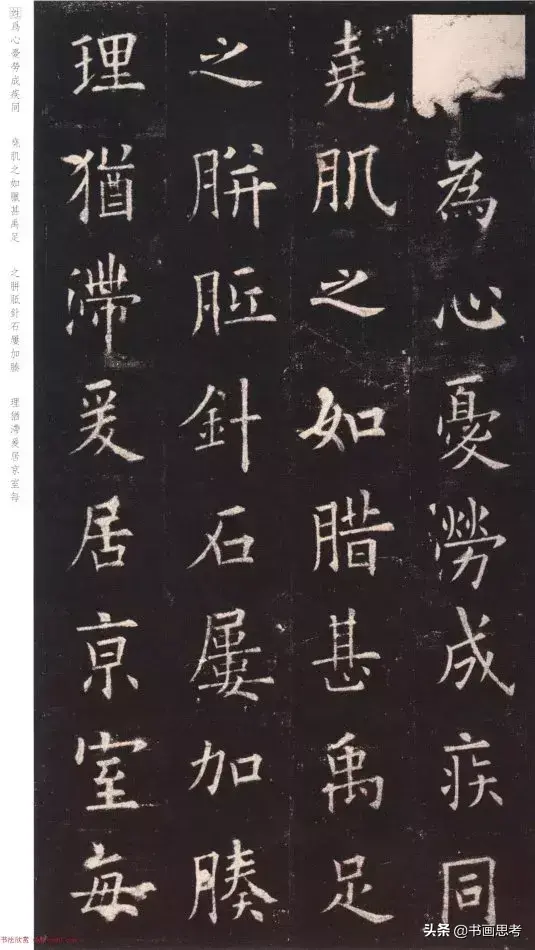 為心憂勞成疾同
堯肌之如腊甚禹足
之胼胝針石屢加腠
理猶滯爰居京室每
姓爲心憂勞成疾同 堯肌之如臘甚禹足 之胼胝針石屢加腠 理猶滯爰居京室每
书法欣赏
头条 @书画思考